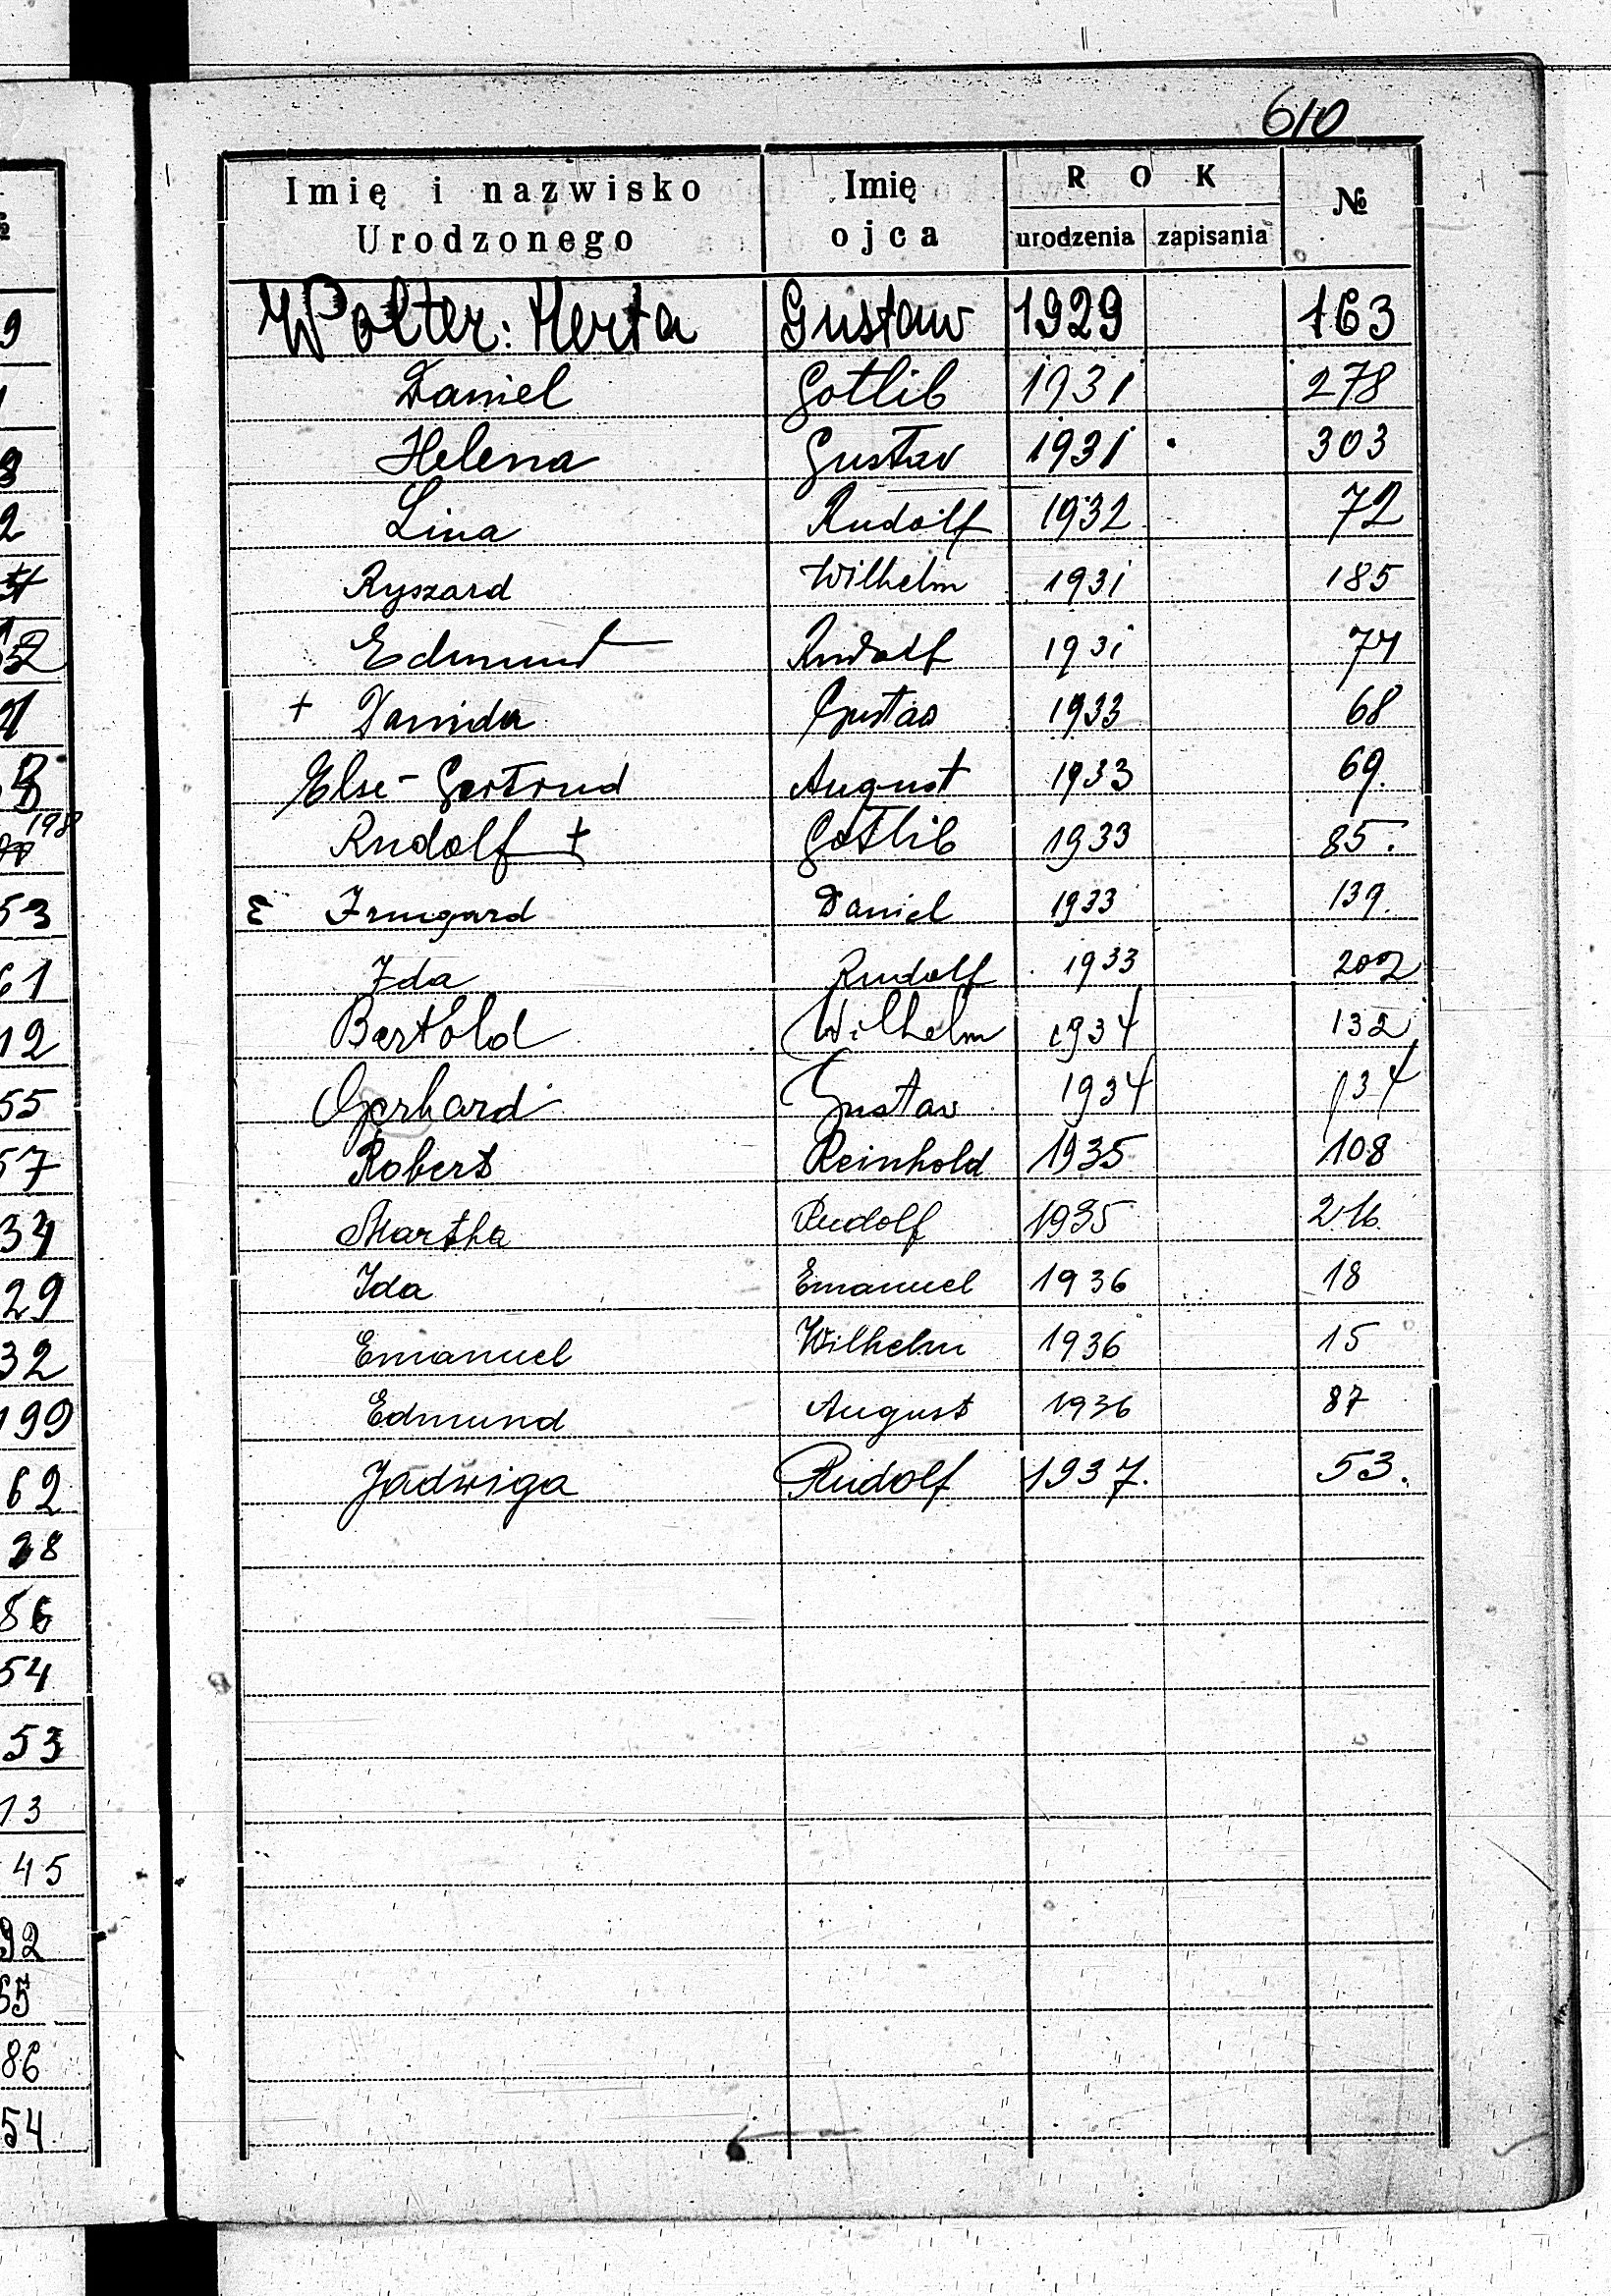 610
Imię i nazwisko Urodzonego | Imię ojca | ROK urodzenia | zapisania | №
Wolter: Herta | Gustaw | 1929 | 163
Daniel | Gotlib | 1931 | 278
Helena | Gustav | 1931 | 303
Lina | Rudolf | 1932 | 72
Ryszard | Wilhelm | 1931 | 185
Edmund | Rudolf | 1931 | 74
+ | Gustav | 1933 | 68
Else-Gertrud | August | 1933 | 69.
Rudolf + | Gotlib | 1933 | 85.
Irmgard | Daniel | 1933 | 139.
Ida | Rudolf | 1933 | 202
Bertold | Wilhelm | 1934 | 132
Gerhard | Gustav | 1934 | 134
Robert | Reinhold | 1935 | 108
Martha | Rudolf | 1935 | 216
Ida | Emanuel | 1936 | 18
Emanuel | Wilhelm | 1936 | 15
Edmund | August | 1936 | 87
Jadwiga | Rudolf | 1937. | 53.